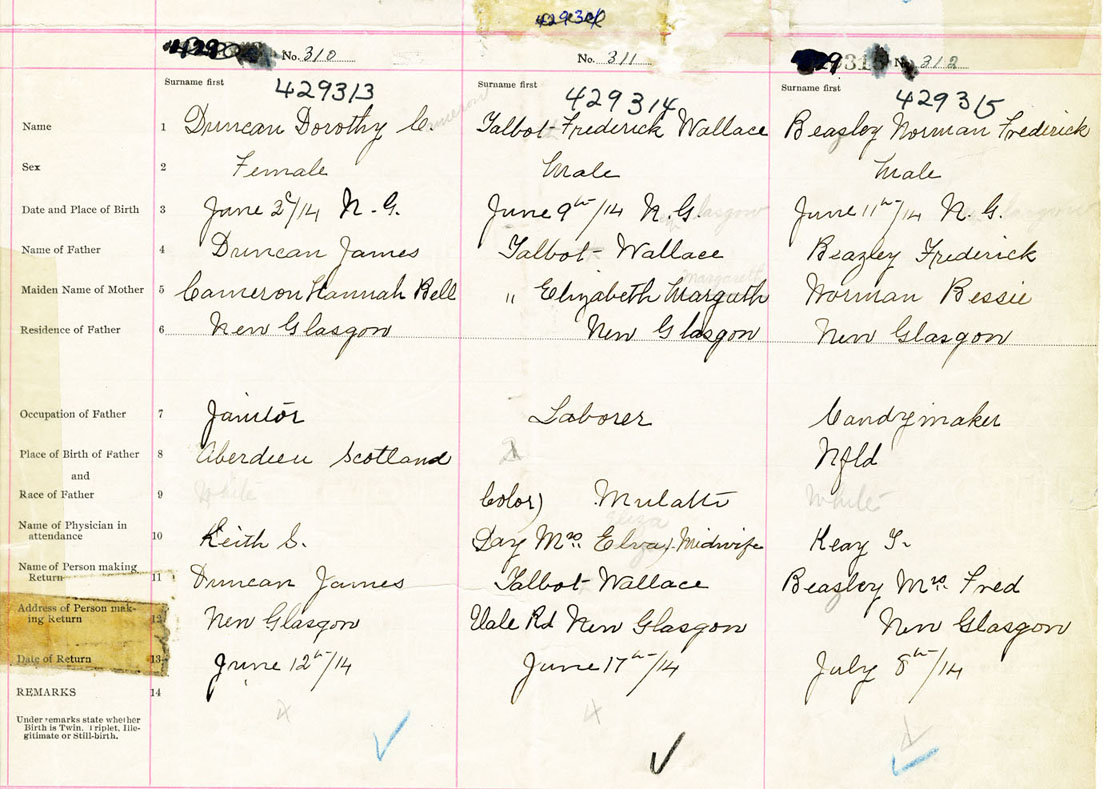 42930
No. 310 No. 311 No. 312
Surname first Surname first Surname first
429313 429314 429315
Name 1 Duncan Dorothy C. Talbot Frederick Wallace Beasley Norman Frederick
Sex 2 Female Male Male
Date and Place of Birth 3 June 2/14 N.G. June 9th/14 N.G. June 11th/14 N.G.
Name of Father 4 Duncan James Talbot Wallace Beazley Frederick
Margarett
Maiden Name of Mother 5 Cameron Hannah Bell " Elizabeth Marguth Norman Bessie
Residence of Father 6 New Glasgow New Glasgow New Glasgow
Occupation of Father 7 Janitor Laborer Candymaker
Place of Birth of Father 8 Aberdeen Scotland Nfld
and
Race of Father 9 White Color) Mulatto White
Name of Physician in
attendance 10 Keith S. Day Mrs. Elva) Midwife Keay T.
Name of Person making
Return 11 Duncan James Talbot Wallace Beasley Mrs. Fred
Address of Person mak-
ing Return 12 New Glasgow Vale Rd New Glasgow New Glasgow
Date of Return 13 June 12th/14 June 17th/14 July 8th/14
REMARKS 14
Under remarks state whether
Birth is Twin, Triplet, Ille-
gitimate or Still-birth.